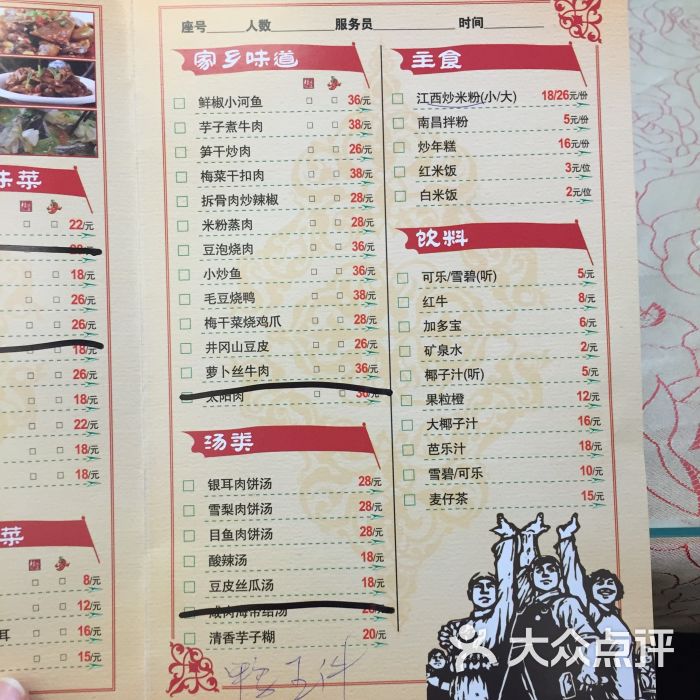 座号 人数 服务员 时间
家乡味道
鲜椒小河鱼 36/元
芋子煮牛肉 38/元
笋干炒肉 26/元
梅菜干扣肉 38/元
拆骨肉炒辣椒 28/元
米粉蒸肉 28/元
豆泡烧肉 36/元
小炒鱼 36/元
毛豆烧鸭 38/元
梅干菜烧鸡爪 28/元
井冈山豆皮 26/元
萝卜丝牛肉 36/元
太阳肉 36/元
汤类
银耳肉饼汤 28/元
雪梨肉饼汤 28/元
目鱼肉饼汤 28/元
酸辣汤 18/元
豆皮丝瓜汤 18/元
咸肉海带结汤 28/元
清香芋子糊 20/元
主食
江西炒米粉(小/大) 18/26元/份
南昌拌粉 5元/份
炒年糕 16元/份
红米饭 3元/位
白米饭 2元/位
饮料
可乐/雪碧(听) 5/元
红牛 8/元
加多宝 6/元
矿泉水 2/元
椰子汁(听) 5/元
果粒橙 12/元
大椰子汁 16/元
芭乐汁 18/元
雪碧/可乐 10/元
麦仔茶 15/元
味菜
22/元
18/元
26/元
26/元
18/元
26/元
18/元
22/元
18/元
18/元
菜
8/元
10/元
16/元
耳 15/元
大众点评